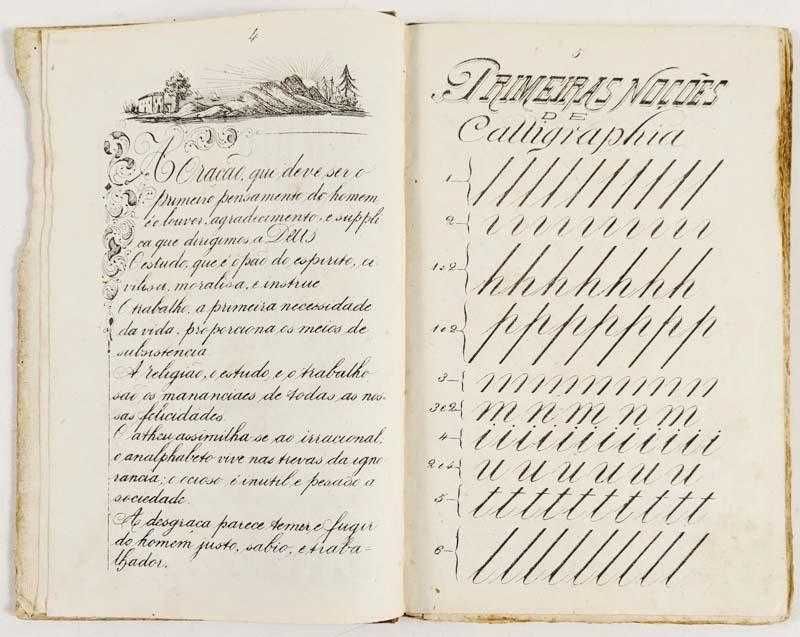 4
A Oração, que deve ser o
primeiro pensamento do homem
é o louvor, agradecimento, e suppli
ca que dirigimos a DEUS
O estudo, que é o pão do espirito, ci
vilisa, moralisa, e instrue
O trabalho, a primeira necessidade
da vida, proporciona os meios de
subsistencia
A religião, o estudo, e o trabalho,
são os mananciaes de todas as nos-
sas felicidades.
O atheu assimilha se ao irracional,
o analphabeto vive nas trevas da igno
rancia; o ocioso é inutil e pesado a
sociedade.
A desgraca parece temer e fugir
do homem justo, sabio, e traba=
lhador.
5
PRIMEIRAS NOÇÕES
DE
Calligraphia
1
2
1 e 2 h h h h h h h h
1 e 2 p p p p p p p p
3
3 e 2 m n m n m
4 i i i i i i i i i i i
2 e 4 u u u u u u
5 t t t t t t t t t t
6